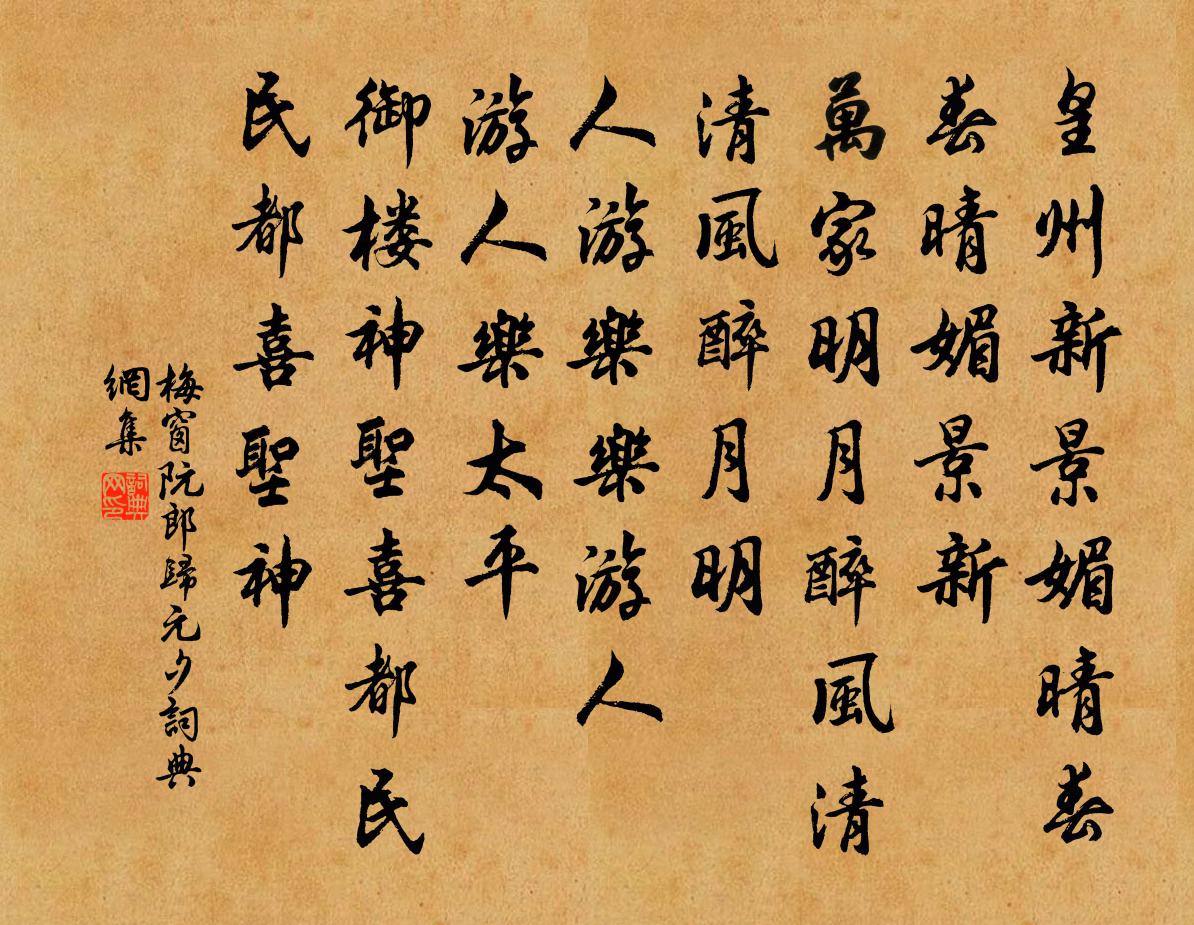 皇州新景媚晴春
春晴媚景新
萬家明月醉風清
清風醉月明
人游樂樂游人
游人樂太平
御楼神聖喜都民
民都喜聖神
梅窗阮郎歸元夕詞典
網集
詞典
网印